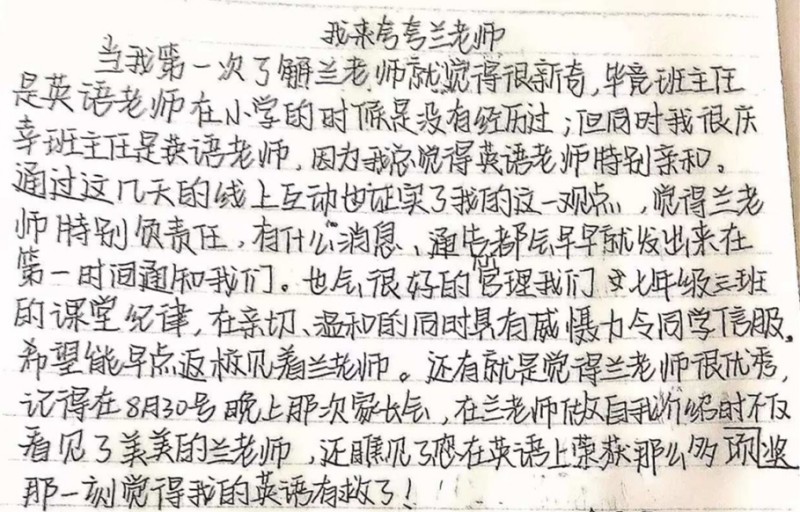 我来夸夸兰老师
当我第一次了解兰老师就觉得很新奇,毕竟班主任
是英语老师在小学的时候是没有经历过;但同时我很庆
幸班主任是英语老师,因为我总觉得英语老师特别亲和。
通过这几天的线上互动也证实了我的这一观点,觉得兰老
师特别负责任,有什么消息、通告都会早早就发出来在
第一时间通知我们。也会很好的管理我们七年级三班
的课堂纪律,在亲切、温和的同时具有威慑力令同学信服。
希望能早点返校见着兰老师。还有就是觉得兰老师很优秀,
记得在8月30号晚上那次家长会,在兰老师做自我介绍时不仅
看见了美美的兰老师,还瞧见了您在英语上荣获那么多项奖
那一刻觉得我的英语有救了!